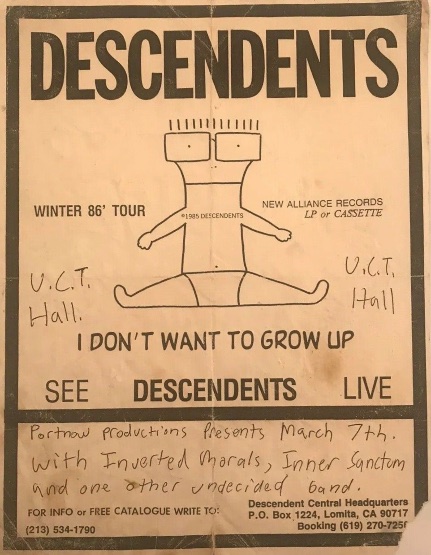 DESCENDENTS
WINTER 86' TOUR
©1985 DESCENDENTS
NEW ALLIANCE RECORDS
LP or CASSETTE
U.C.T.
Hall.
U.C.T.
Hall
I DON'T WANT TO GROW UP
SEE DESCENDENTS LIVE
Portnow Productions Presents March 7th.
with Inverted Morals, Inner Sanctum
and one other undecided band.
FOR INFO or FREE CATALOGUE WRITE TO:
(213) 534-1790
Descendent Central Headquarters
P.O. Box 1224, Lomita, CA 90717
Booking (619) 270-725